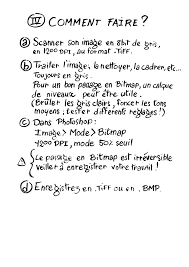 IV COMMENT FAIRE?
a Scanner son image en 8bit de gris,
en 1200 DPI, au format .TIFF.
b Traiter l'image, le nettoyer, la cadrer, etc...
Toujours en gris.
Pour un bon passage en Bitmap, un calque
de niveaux peut être utile.
(Brûler les gris clairs, foncer les tons
moyens; tester différents réglages!)
c Dans Photoshop:
Image > Mode > Bitmap
1200 DPI, mode 50% seuil
⚠ Le passage en Bitmap est irréversible
veiller à enregistrer votre travail!
d Enregistrer en .TIFF ou en .BMP.